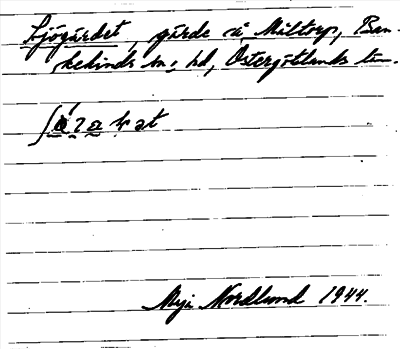 Sjögärdet, gärde å Miltorp, Ban-
kekinds sn o. hd, Östergötlands län.
Maja Nordlund 1944.